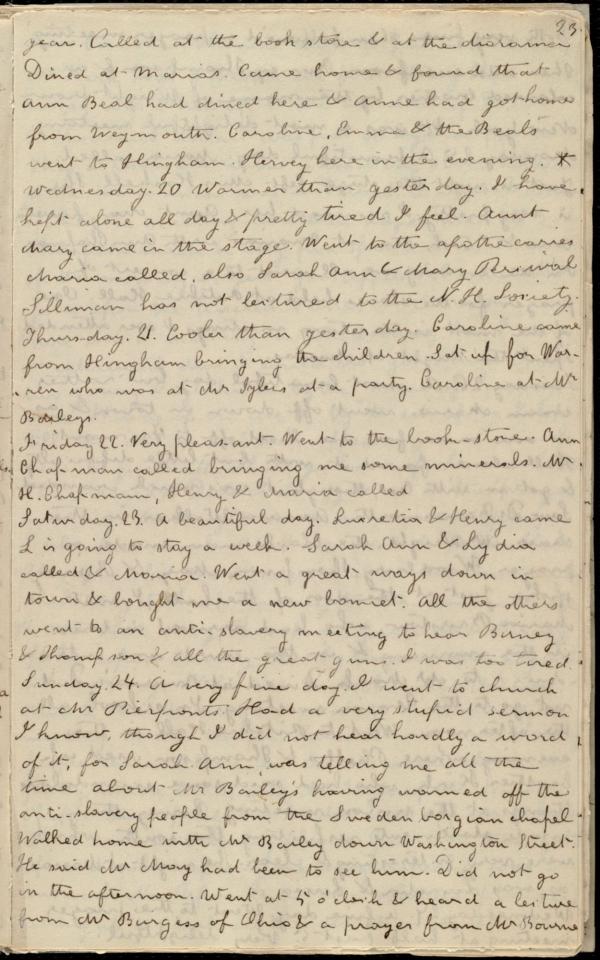 23.
year. Called at the book store & at the diorama
Dined at Marias. Came home & found that
Ann Beal had dined here & Anne had got home
from Weymouth. Caroline, Emma & the Beals
went to Hingham. Hervey here in the evening. *
Wednesday. 20 Warmer than yesterday. I have
kept alone all day & pretty tired I feel. Aunt
Mary came in the stage. Went to the apothecaries
Maria called, also Sarah Ann & Mary Perival
Silliman has not lectured to the N. H. Society.
Thursday. 21. Cooler than yesterday. Caroline came
from Hingham bringing the children. Sat up for War-
ren who was at Mr Sylers at a party. Caroline at Mr
Baileys.
Friday 22. Very pleasant. Went to the book-store. Ann
Chapman called bringing me some minerals. Mr.
H. Chapman, Henry & Maria called
Saturday. 23. A beautiful day. Lucretia & Henry came
L is going to stay a week. Sarah Ann & Lydia
called & Maria. Went a great ways down in
town & bought me a new bonnet. All the others
went to an anti-slavery meeting to hear Birney
& Thompson & all the great guns. I was too tired.
Sunday. 24. A very fine day. I went to church
at Mr Pierponts Had a very stupid sermon
I know, though I did not hear hardly a word
of it, for Sarah Ann, was telling me all the
time about Mr Bailey's having warned off the
anti-slavery people from the Swedenborgian chapel
Walked home with Mr Bailey down Washington Street.
He said Mr May had been to see him. Did not go
in the afternoon. Went at 5 o'clock & heard a lecture
from Mr Burgess of Ohio & a prayer from Mr Bourne